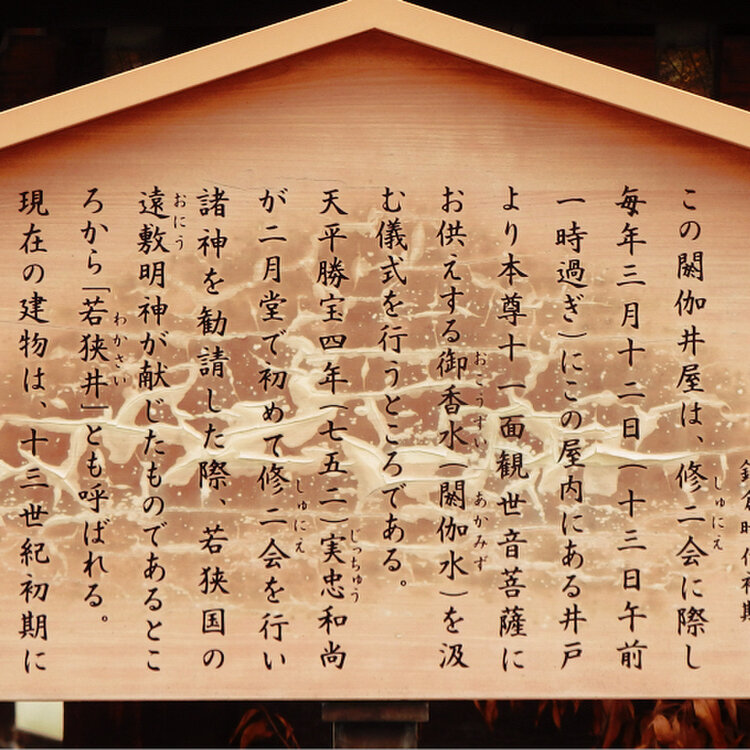 鎌倉時代初期
この閼伽井屋は、修二会に際し
しゅにえ
毎年三月十二日(十三日午前
一時過ぎ)にこの屋内にある井戸
より本尊十一面観世音菩薩に
お供えする御香水(閼伽水)を汲
おこうずい
あかみず
む儀式を行うところである。
天平勝宝四年(七五二)実忠和尚
じっちゅう
が二月堂で初めて修二会を行い
しゅにえ
諸神を勧請した際、若狭国の
遠敷明神が献じたものであるとこ
おにう
ろから「若狭井」とも呼ばれる。
わかさい
現在の建物は、十三世紀初期に